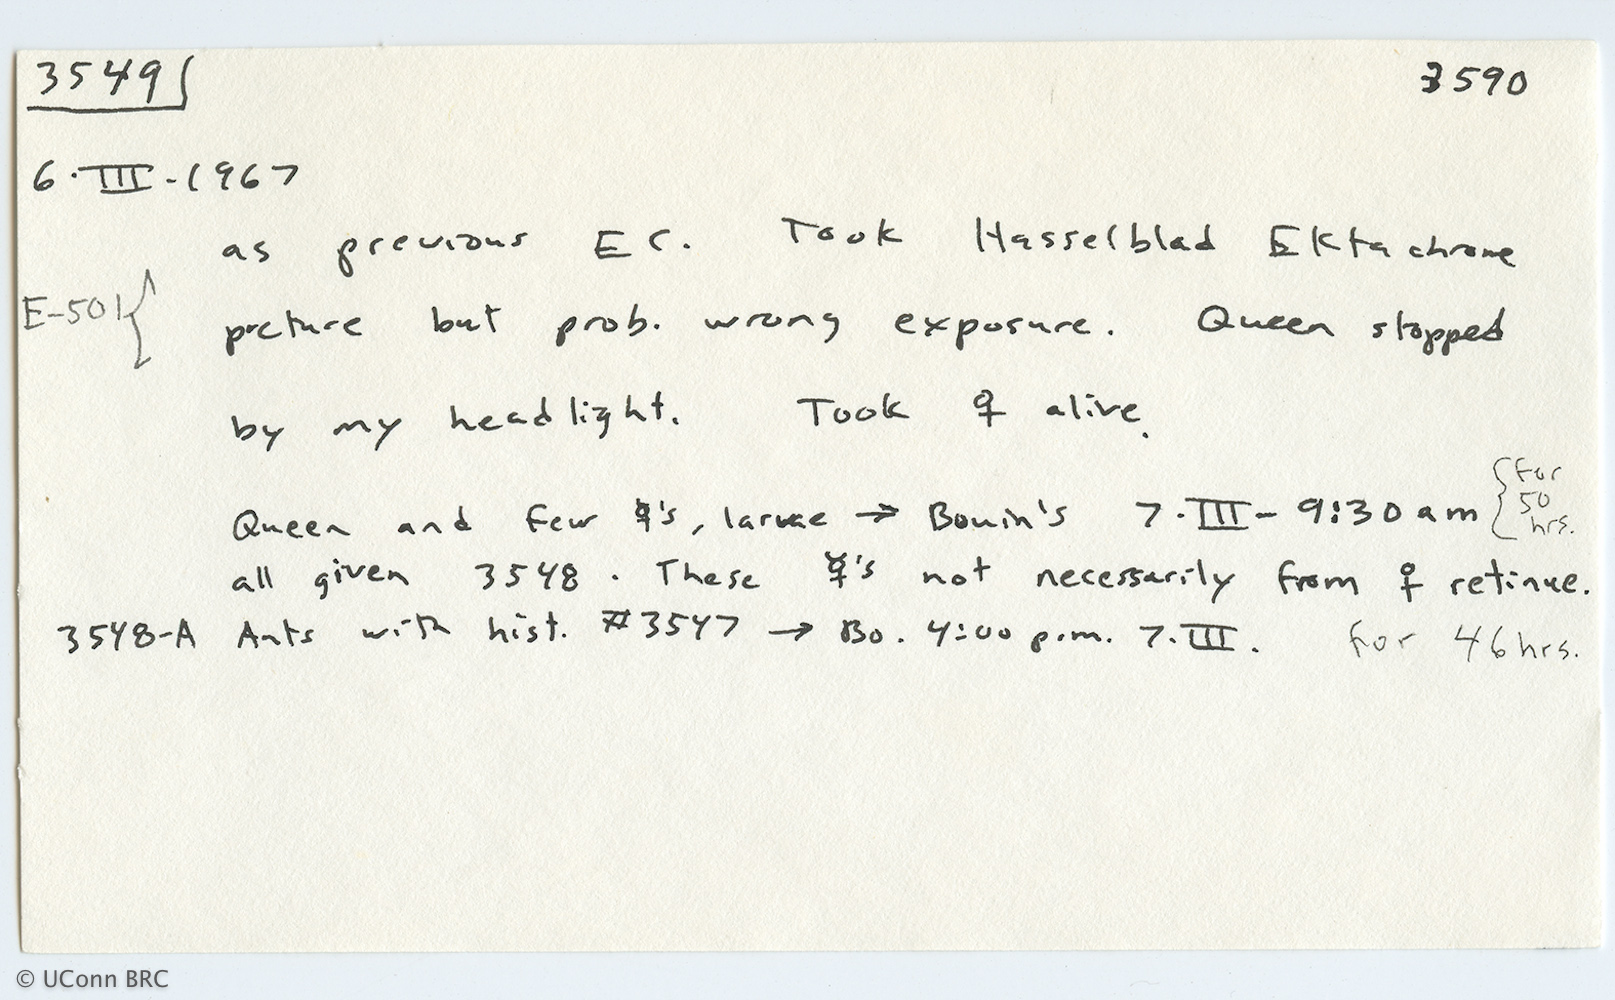 3549 3590
6·III-1967
as previous EC. Took Hasselblad Ektachrome
E-501 { picture but prob. wrong exposure. Queen stopped
by my headlight. Took ♀ alive.
Queen and few ☿'s, larvae → Bouin's 7·III- 9:30 am { for 50 hrs.
all given 3548. These ☿'s not necessarily from ♀ retinue.
3548-A Ants with hist. #3547 → Bo. 4:00 p.m. 7·III. for 46 hrs.
© UConn BRC